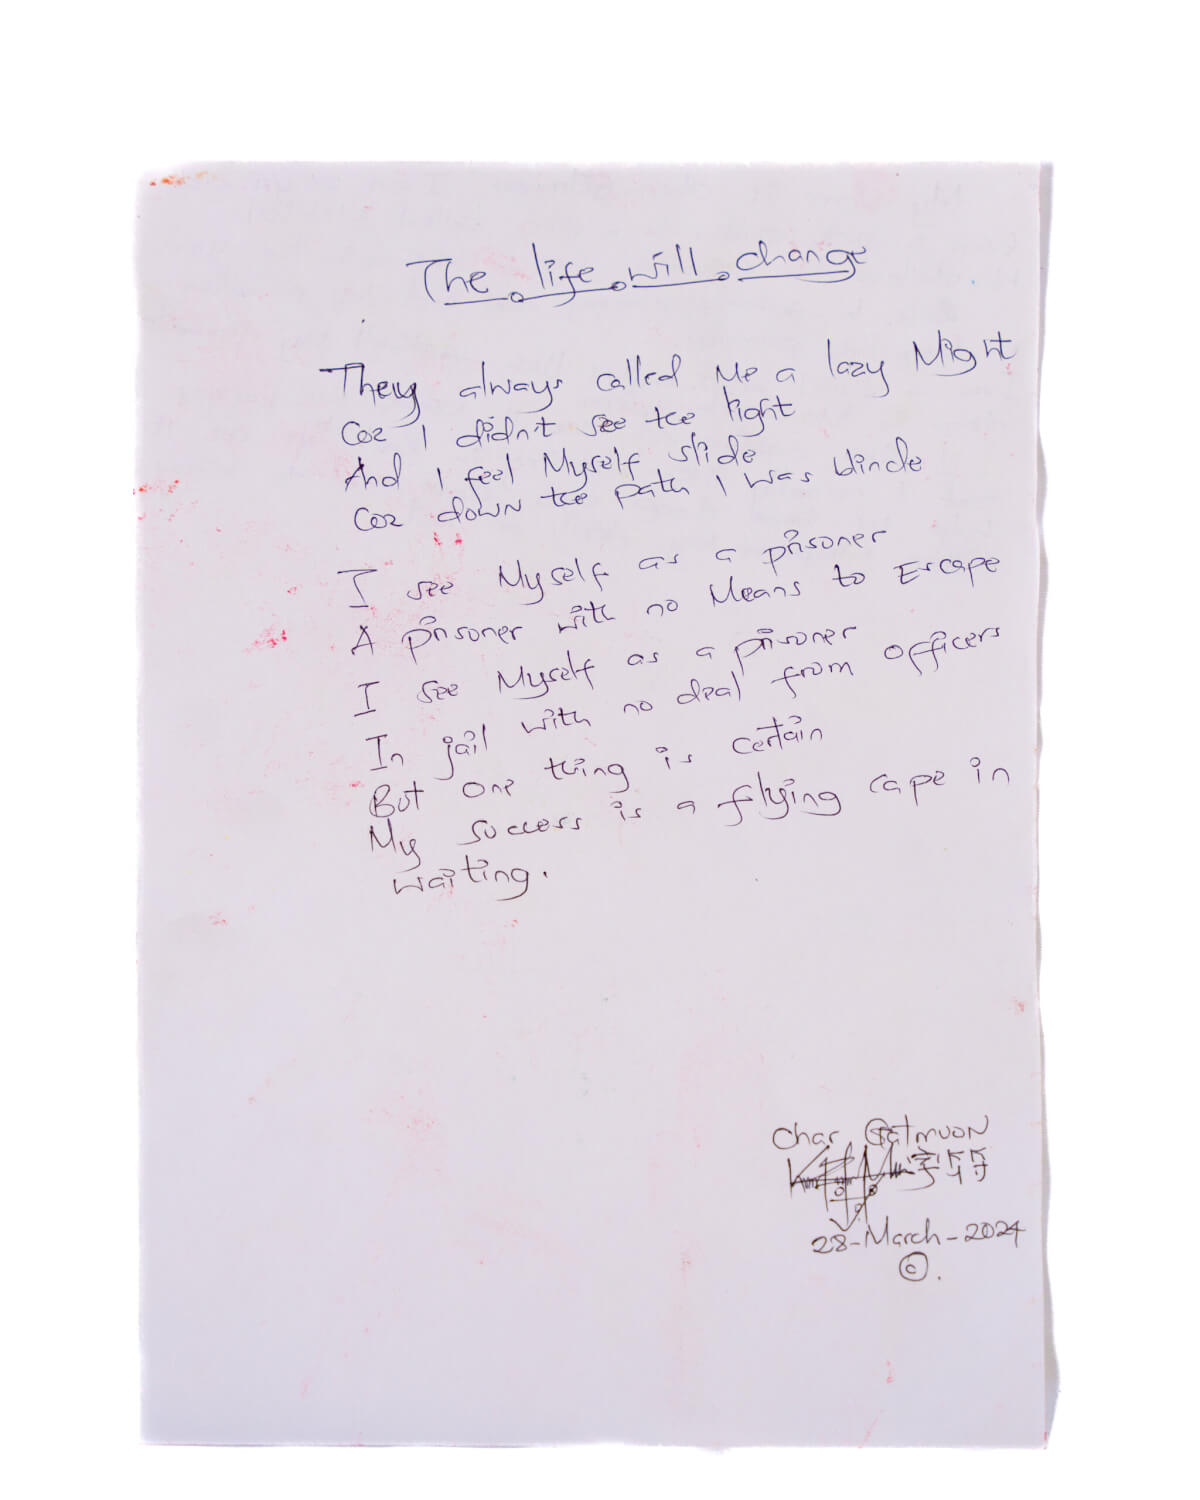 The life will change
They always called Me a lazy Might
Coz I didn't see the light
And I feel Myself slide
Coz down the path I was blinde
I see Myself as a prisoner
A prisoner with no Means to Escape
I see Myself as a prisoner
In jail with no deal from officers
But one thing is certain
My success is a flying cape in
waiting.
Char Gatmuon
28-March-2024
©.